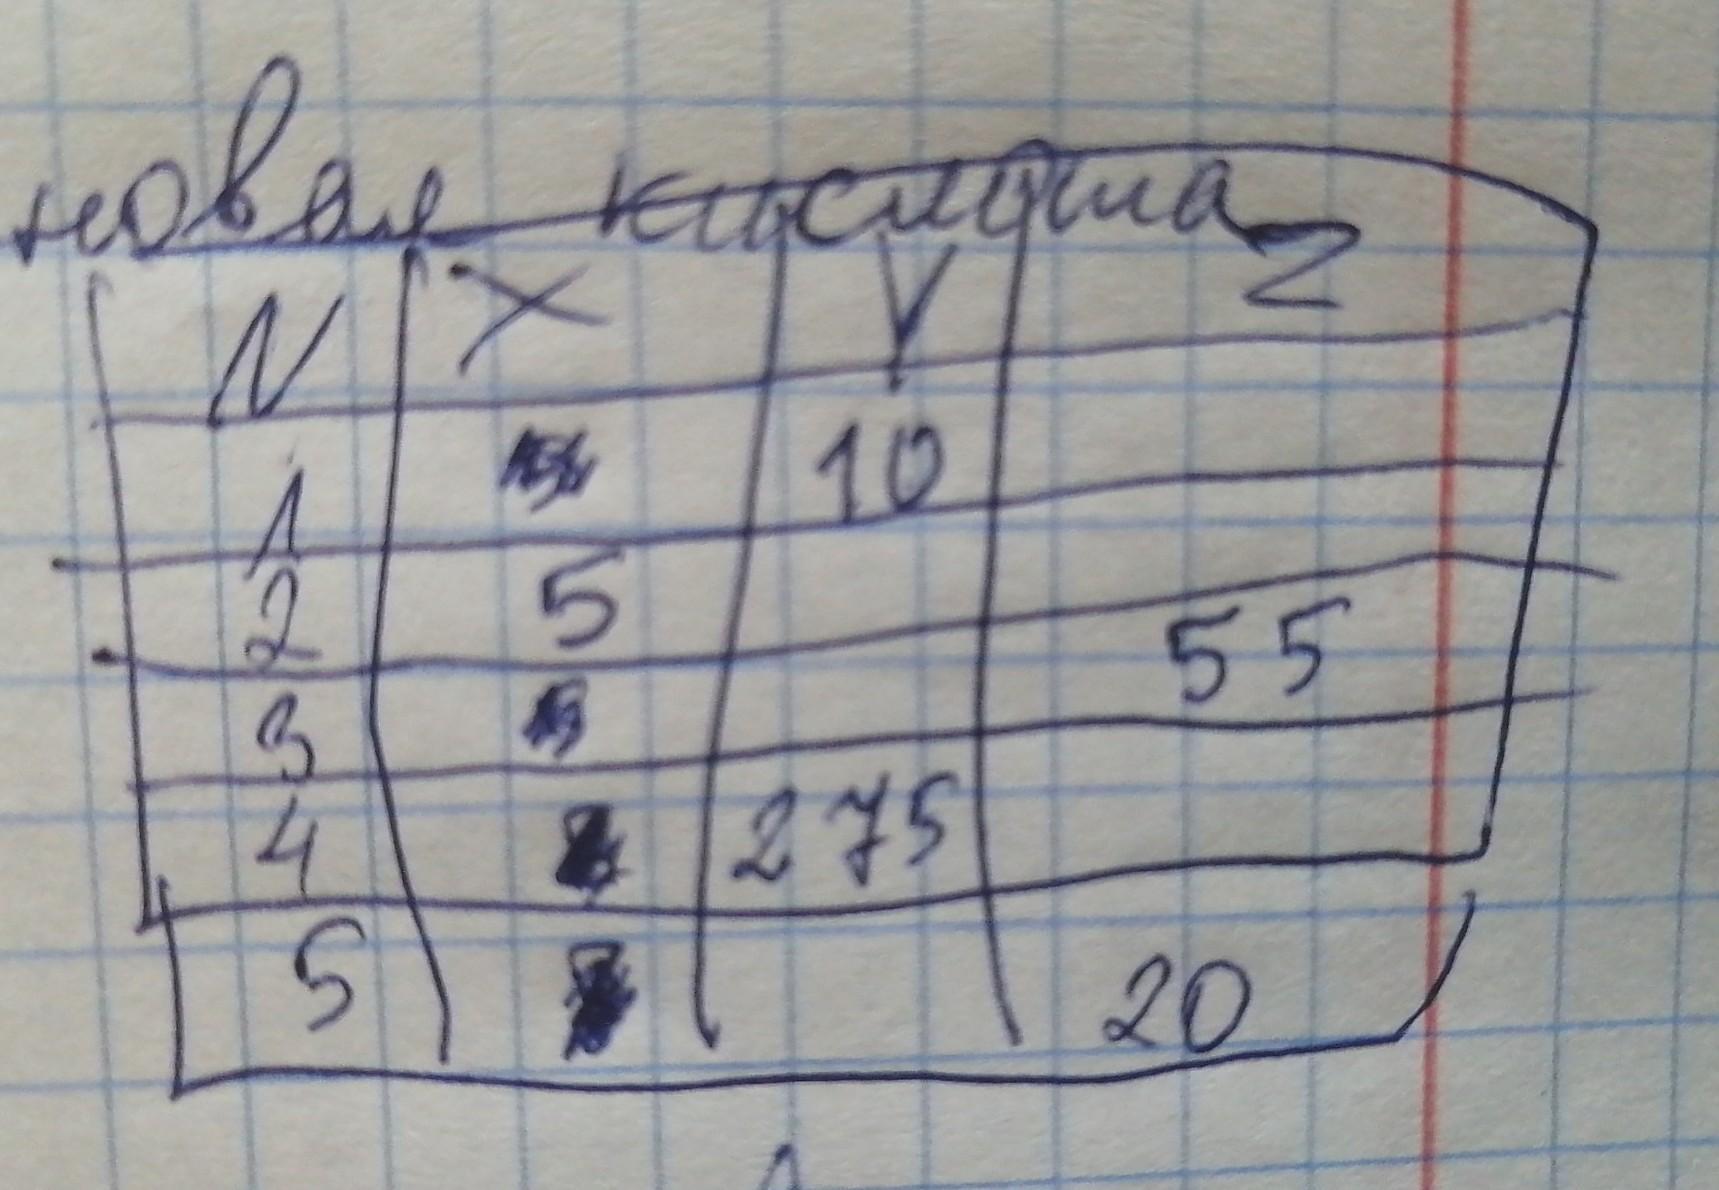 новая кислота
N X Y Z
1 10
2 5
3 55
4 275
5 20